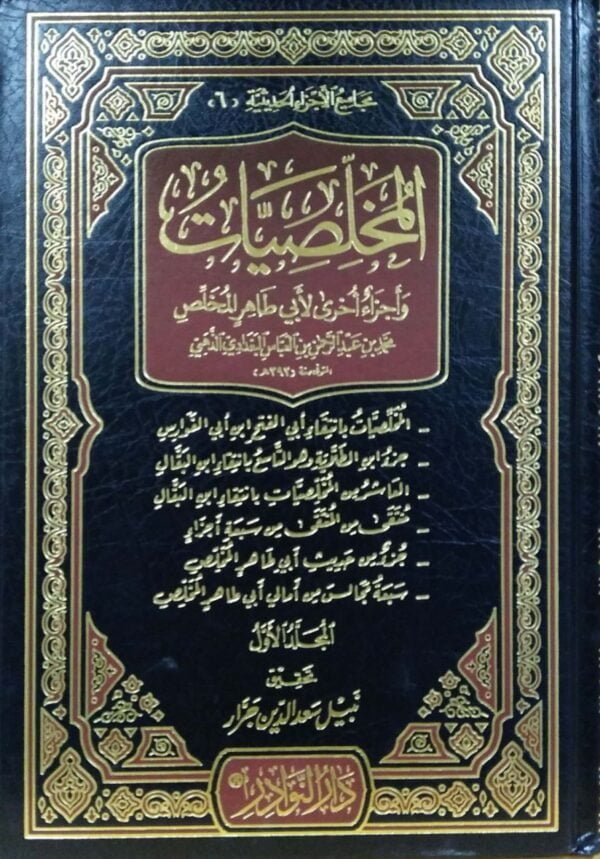 مجاميع الأجزاء الحديثية (٦)
المخلِّصيَّات
وَأجزاءٌ أُخرى لأبي طَاهِرٍ المُخَلِّصِ
محمّد بن عبد الرحمن بن العباس البغدادي الذهبي
المتوفى سنة (٣٩٣هـ)
- المُخَلِّصيَّاتُ بانتقاءِ أبي الفتح ابن أبي الفوارس
- جزء ابن الطلّاية وهو التاسع بانتقاء ابن البقّال
- العاشر من المُخَلِّصيَّاتِ بانتقاء ابن البقّال
- مُنتقى من المُنتقى من سبعة أجزاء
- جزءٌ من حديث أبي طاهر المُخَلِّص
- سبعة مجالس من أمالي أبي طاهر المُخَلِّص
المجلّد الأوّل
تحقيق
نبيل سعد الدين جرّار
دار النوادر